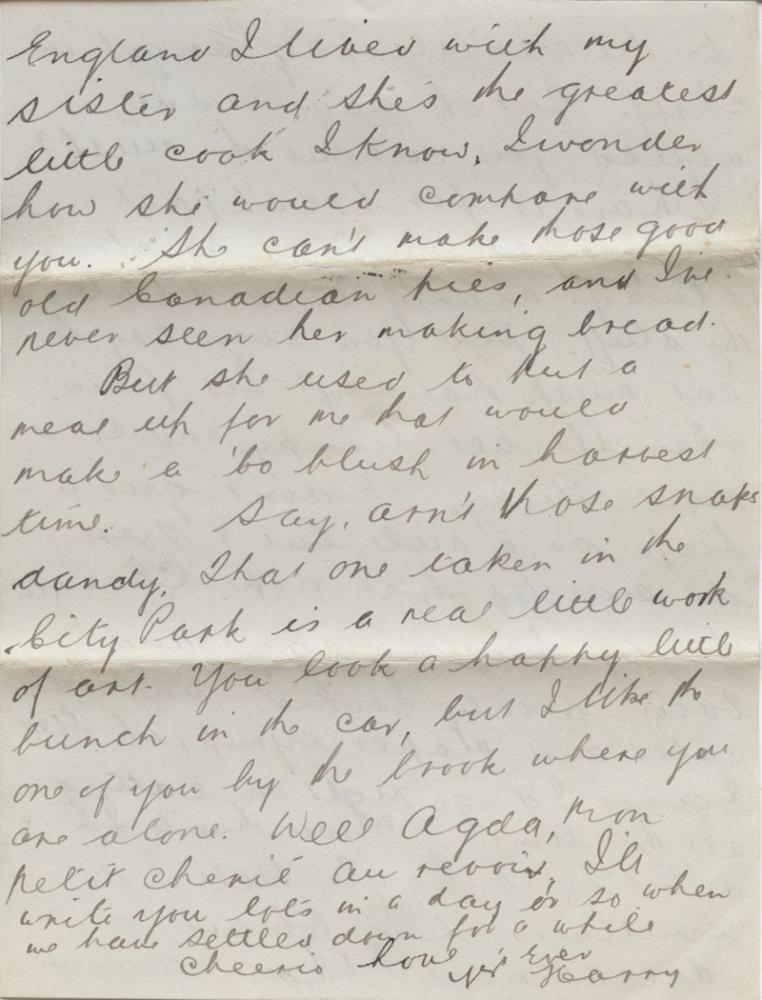 England I lived with my
sister and she's the greatest
little cook I know, I wonder
how she would compare with
you. She can't make those good
old Canadian pies, and I've
never seen her making bread.
But she used to put a
meal up for me that would
make a 'bo blush in harvest
time. Say, arn't those snaps
dandy, That one taken in the
City Park is a real little work
of art. You look a happy little
bunch in the car, but I like the
one of you by the brook where you
are alone. Well Agda, Mon
petit cherié au revoir, I'll
write you lots in a day or so when
we have settled down for a while
Cheerio love yrs Ever
Harry